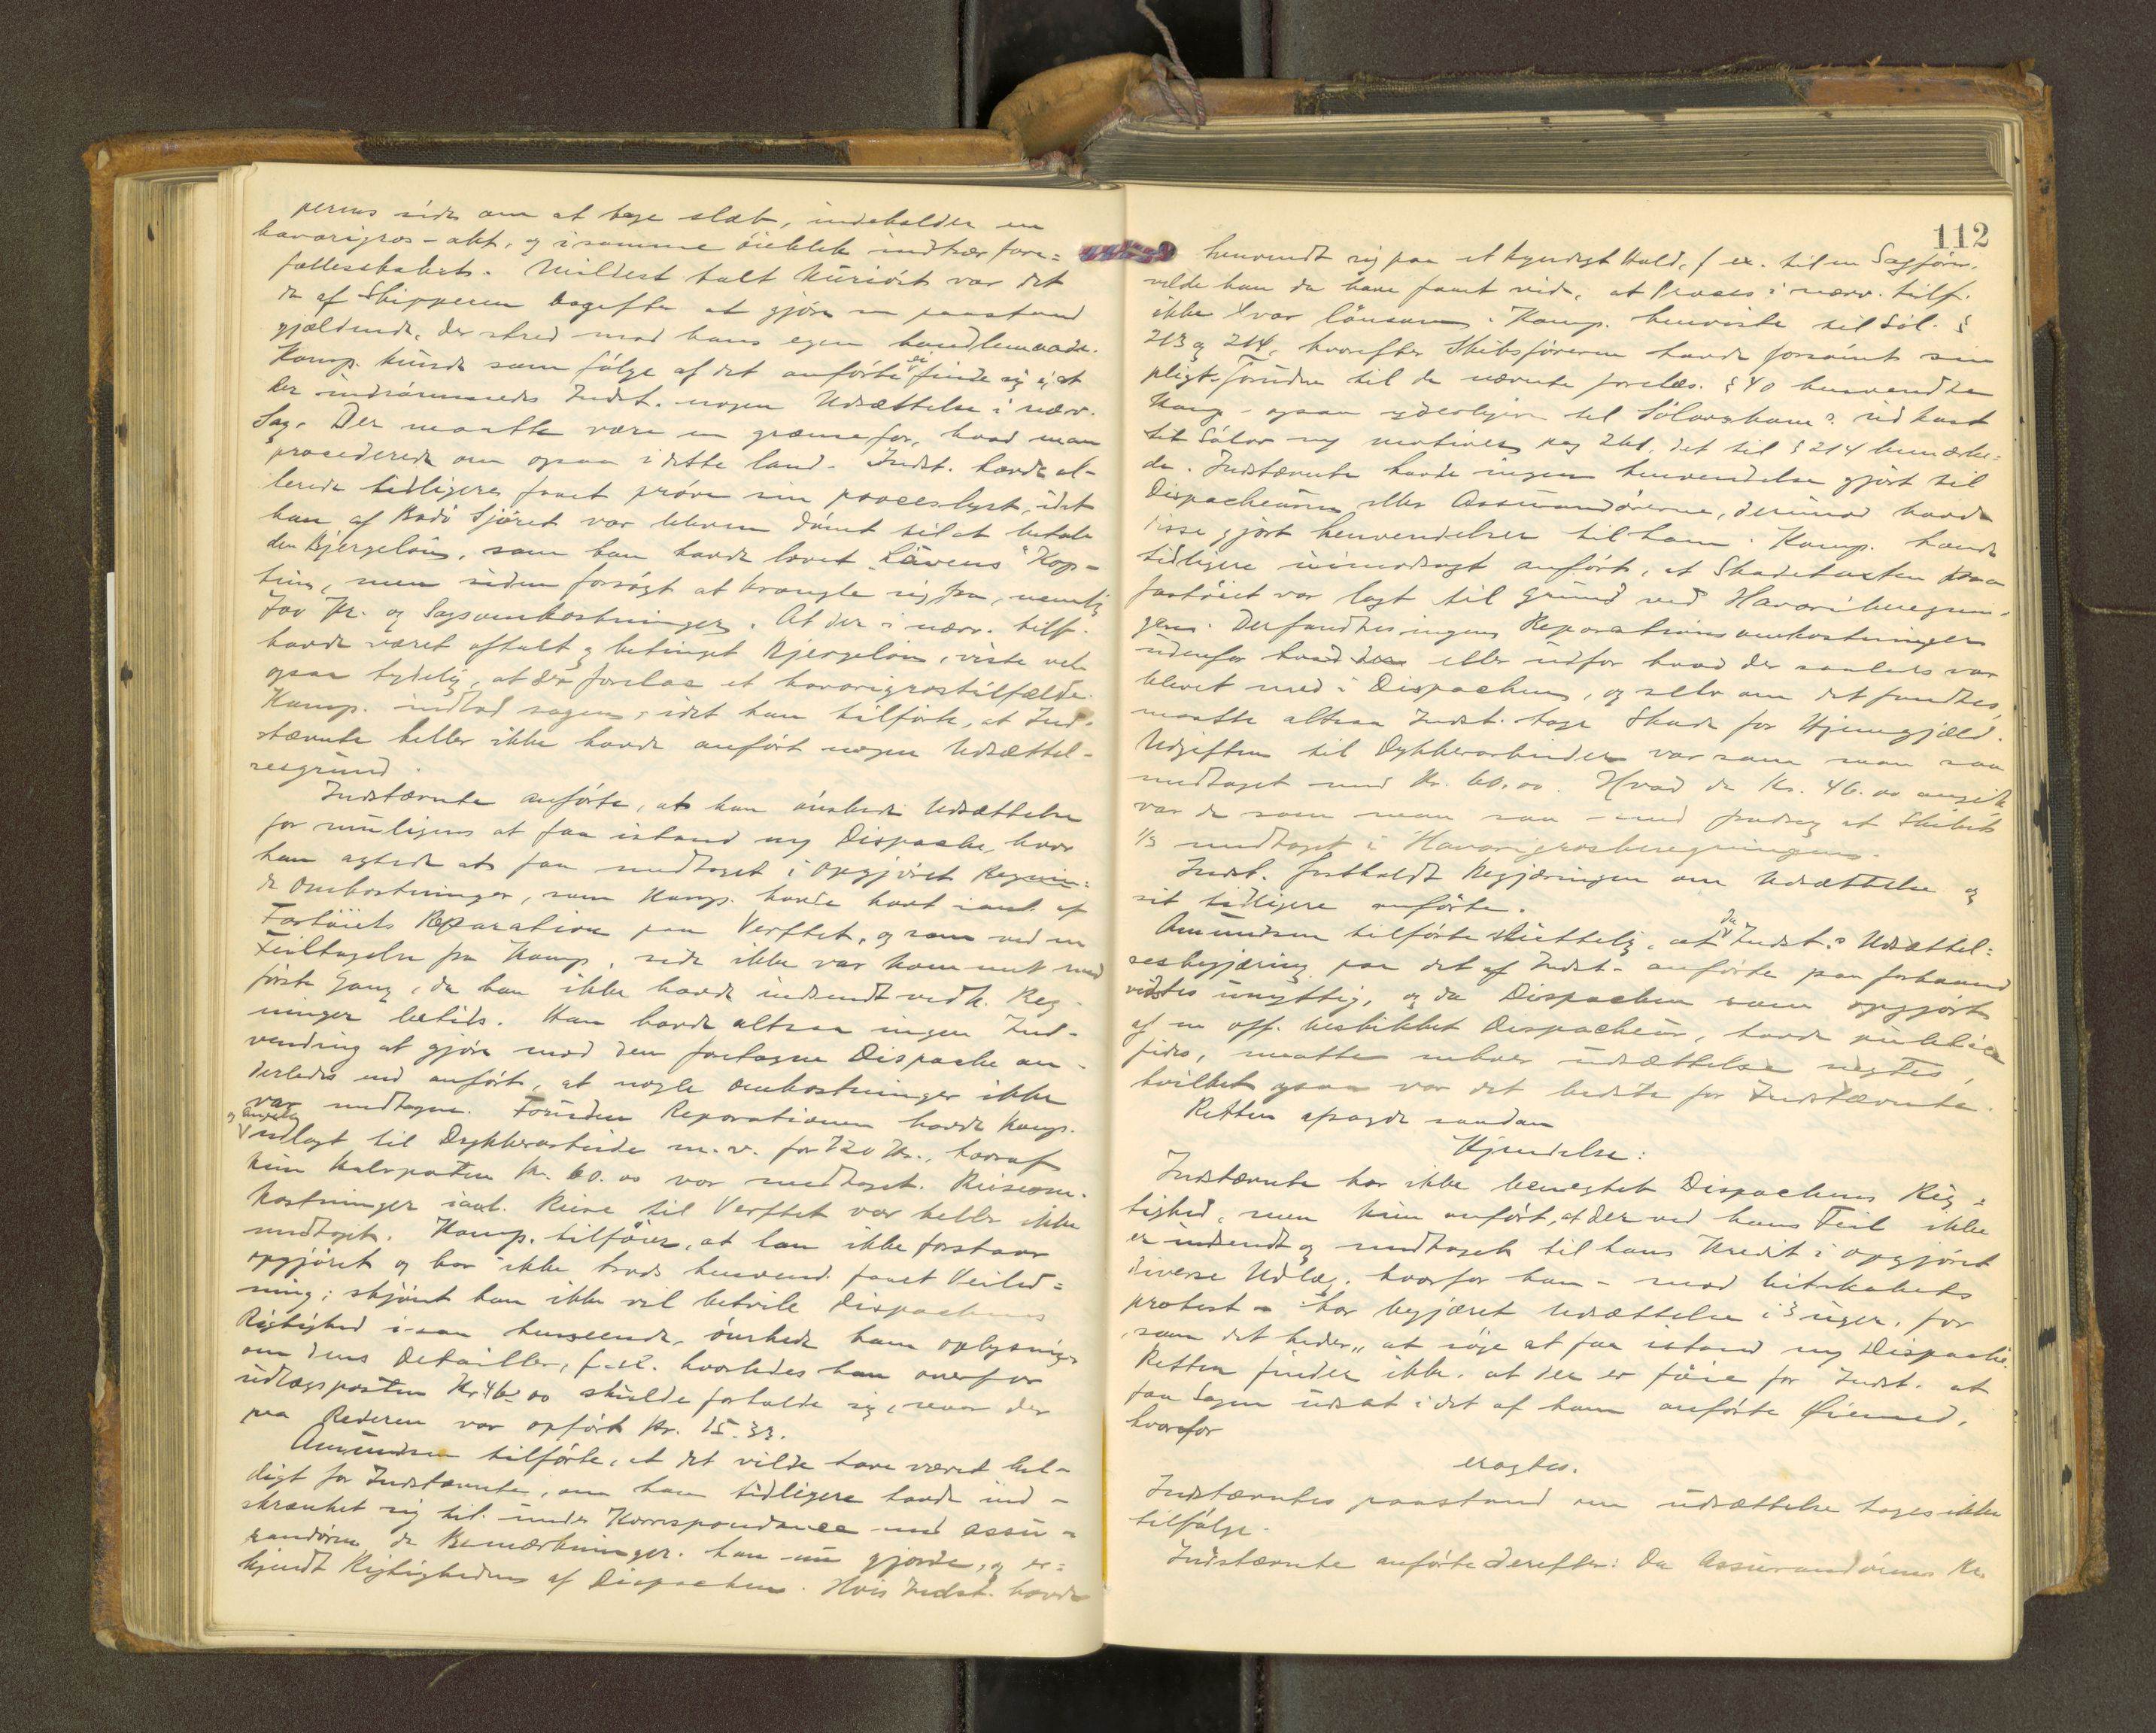 perens side om at tage slæb, indeholder en
havarigros-akt, og i samme öieblik indtrær fare=
fællesskabet. Mildest talt kuriöst var det
da af Skipperen bagefter at gjöre en paastand
gjældende, der stred mod hans egen handlemaade.
Komp. kunde som fölge af det anförte ei finde sig i, at
der indrömmedes Indst. nogen Udsættelse i nærv.
Sag. Der maatte være en grænse for, hvad man
procederede om ogsaa i dette land. Indst. havde al-
lerede tidligere faaet pröve sin proceslyst, idet
han af Bodö Sjöret var bleven dömt til at betale
den Bjergelön, som han havde lovet "Lövens" Kap-
tein, men siden forsögt at vrangle sig fra, nemlig
700 Kr. og Sagsomkostninger. At der i nærv. tilf.
havde været aftalt og betinget Bjergelön, viste vel
ogsaa tydelig, at der forelaa et havarigrostilfælde.
Komp. indlod sagen, idet han tilförte, at Ind-
stævnte heller ikke havde anfört nogen Udsættel-
sesgrund.
Indstævnte anförte, at han önskede Udsættelse
for muligens at faa istand ny Dispache, hvor
han agtede at faa medtaget i Opgjöret
de Omkostninger, som Komp. havde havt i anl. af
Fartöiets Reparation paa Verftet, og som ved en
Feiltagelse fra Komp. side ikke var kommet med
förste Gang, da han ikke havde indsendt vedk. Reg-
ninger betids. Han havde altsaa ingen Ind-
vending at gjöre mod den foretagne Dispache an-
derledes end anfört, at nogle Omkostninger ikke
var medtagne. Foruden Reparationen havde Komp.
og angivelig udlagt til Dykkerarbeide m.v. for 720 Kr., hvoraf
kun Halvparten Kr. 60.00 var medtaget. Reiseom-
kostninger i anl. Reise til Verftet var heller ikke
medtaget. Komp. tilföier, at han ikke forstaar
opgjöret og har ikke trods henvend. faaet Veiled=
ning; skjönt han ikke vil betvile Dispachens
Rigtighed i saa henseende, önskede han oplysninger
om dens Detailler, f. ex. hvorledes han overfor
udlægsposten Kr 46.00 skulde forholde sig, naar der
paa Rederen var opfört Kr. 15.33.
Amundsen tilförte, at det vilde have været hel-
digt for Indstævnte, om han tidligere havde ind-
skrænket sig til under Korrespondance med Assu-
randören de Bemærkninger han nu gjorde, og er=
kjendt Rigtigheden af Dispachen. Hvis Indst. havde
112
henvendt sig paa et kyndigt Hold, f ex. til en Sagförer,
vilde han da have faaet vide, at Proces i nærv. tilf.
ikke var lönsom. Komp. henviste til Söl. §
213 og 214, hvorefter Skibsföreren havde forsömt sin
pligt. Foruden til de nævnte foreläs. § 40 henvendte
Komp. ogsaa yderligere til Sölovskom.s udkast
til Sölov ny motiver pag 261, det til § 214 bemærke-
de. Indstævnte havde ingen henvendelse gjört til
Dispacheuren eller Assurandörerne, derimod havde
disse gjört henvendelser til ham. Komp. havde
tidligere uimodsagt anfört, at Skadetaxten paa
fartöiet var lagt til Grund ved Havariberegnin-
gen. Der fandtes ingen Reparationsomkostninger
udenfor eller udfor hvad der saaledes var
blevet med i Dispachen, og selv om det fandtes,
maatte altsaa Indst. tage Skade for Hjemgjæld.
Udgiften til Dykkerarbeidet var som man saa
medtaget med Kr. 60.00. Hvad de Kr. 46.00 angik
var de som man saa – med fradrag af Skibets
1/3 medtaget i Havarigrosberegningen.
Indst. fastholdt Begjæringen om Udsættelse og
sit tidligere anförte.
Amundsen tilförte sluttelig, at da Indst.s Udsættel-
sesbegjæring paa det af Indst. anförte paa forhaand
vistes unyttig, og da Dispachen som opgjört
af en off. beskikket Dispacheur, havde publica
fides, maatte enhver udsættelse nægtes,
hvilket ogsaa var det bedste for Indstævnte.
Retten afsagde saadan
Kjendelse:
Indstævnte har ikke benegtet Dispachens Rig-
tighed, men kun anfört, at der ved hans Feil ikke
er indsendt og medtaget til hans Kredit i opgjöret
diverse Udlæg, hvorfor han – mod citskabets
protest – har begjæret Udsættelse i 3 uger, for
som det heder, "at söge at faa istand ny Dispache."
Retten finder ikke, at der er föie for Indst. at
faa Sagen udsat i det af ham anförte Öiemed,
hvorfor
eragtes.
Indstævntes paastand om udsættelse tages ikke
tilfölge.
Indstævnte anförte derefter: Da Assurandörens